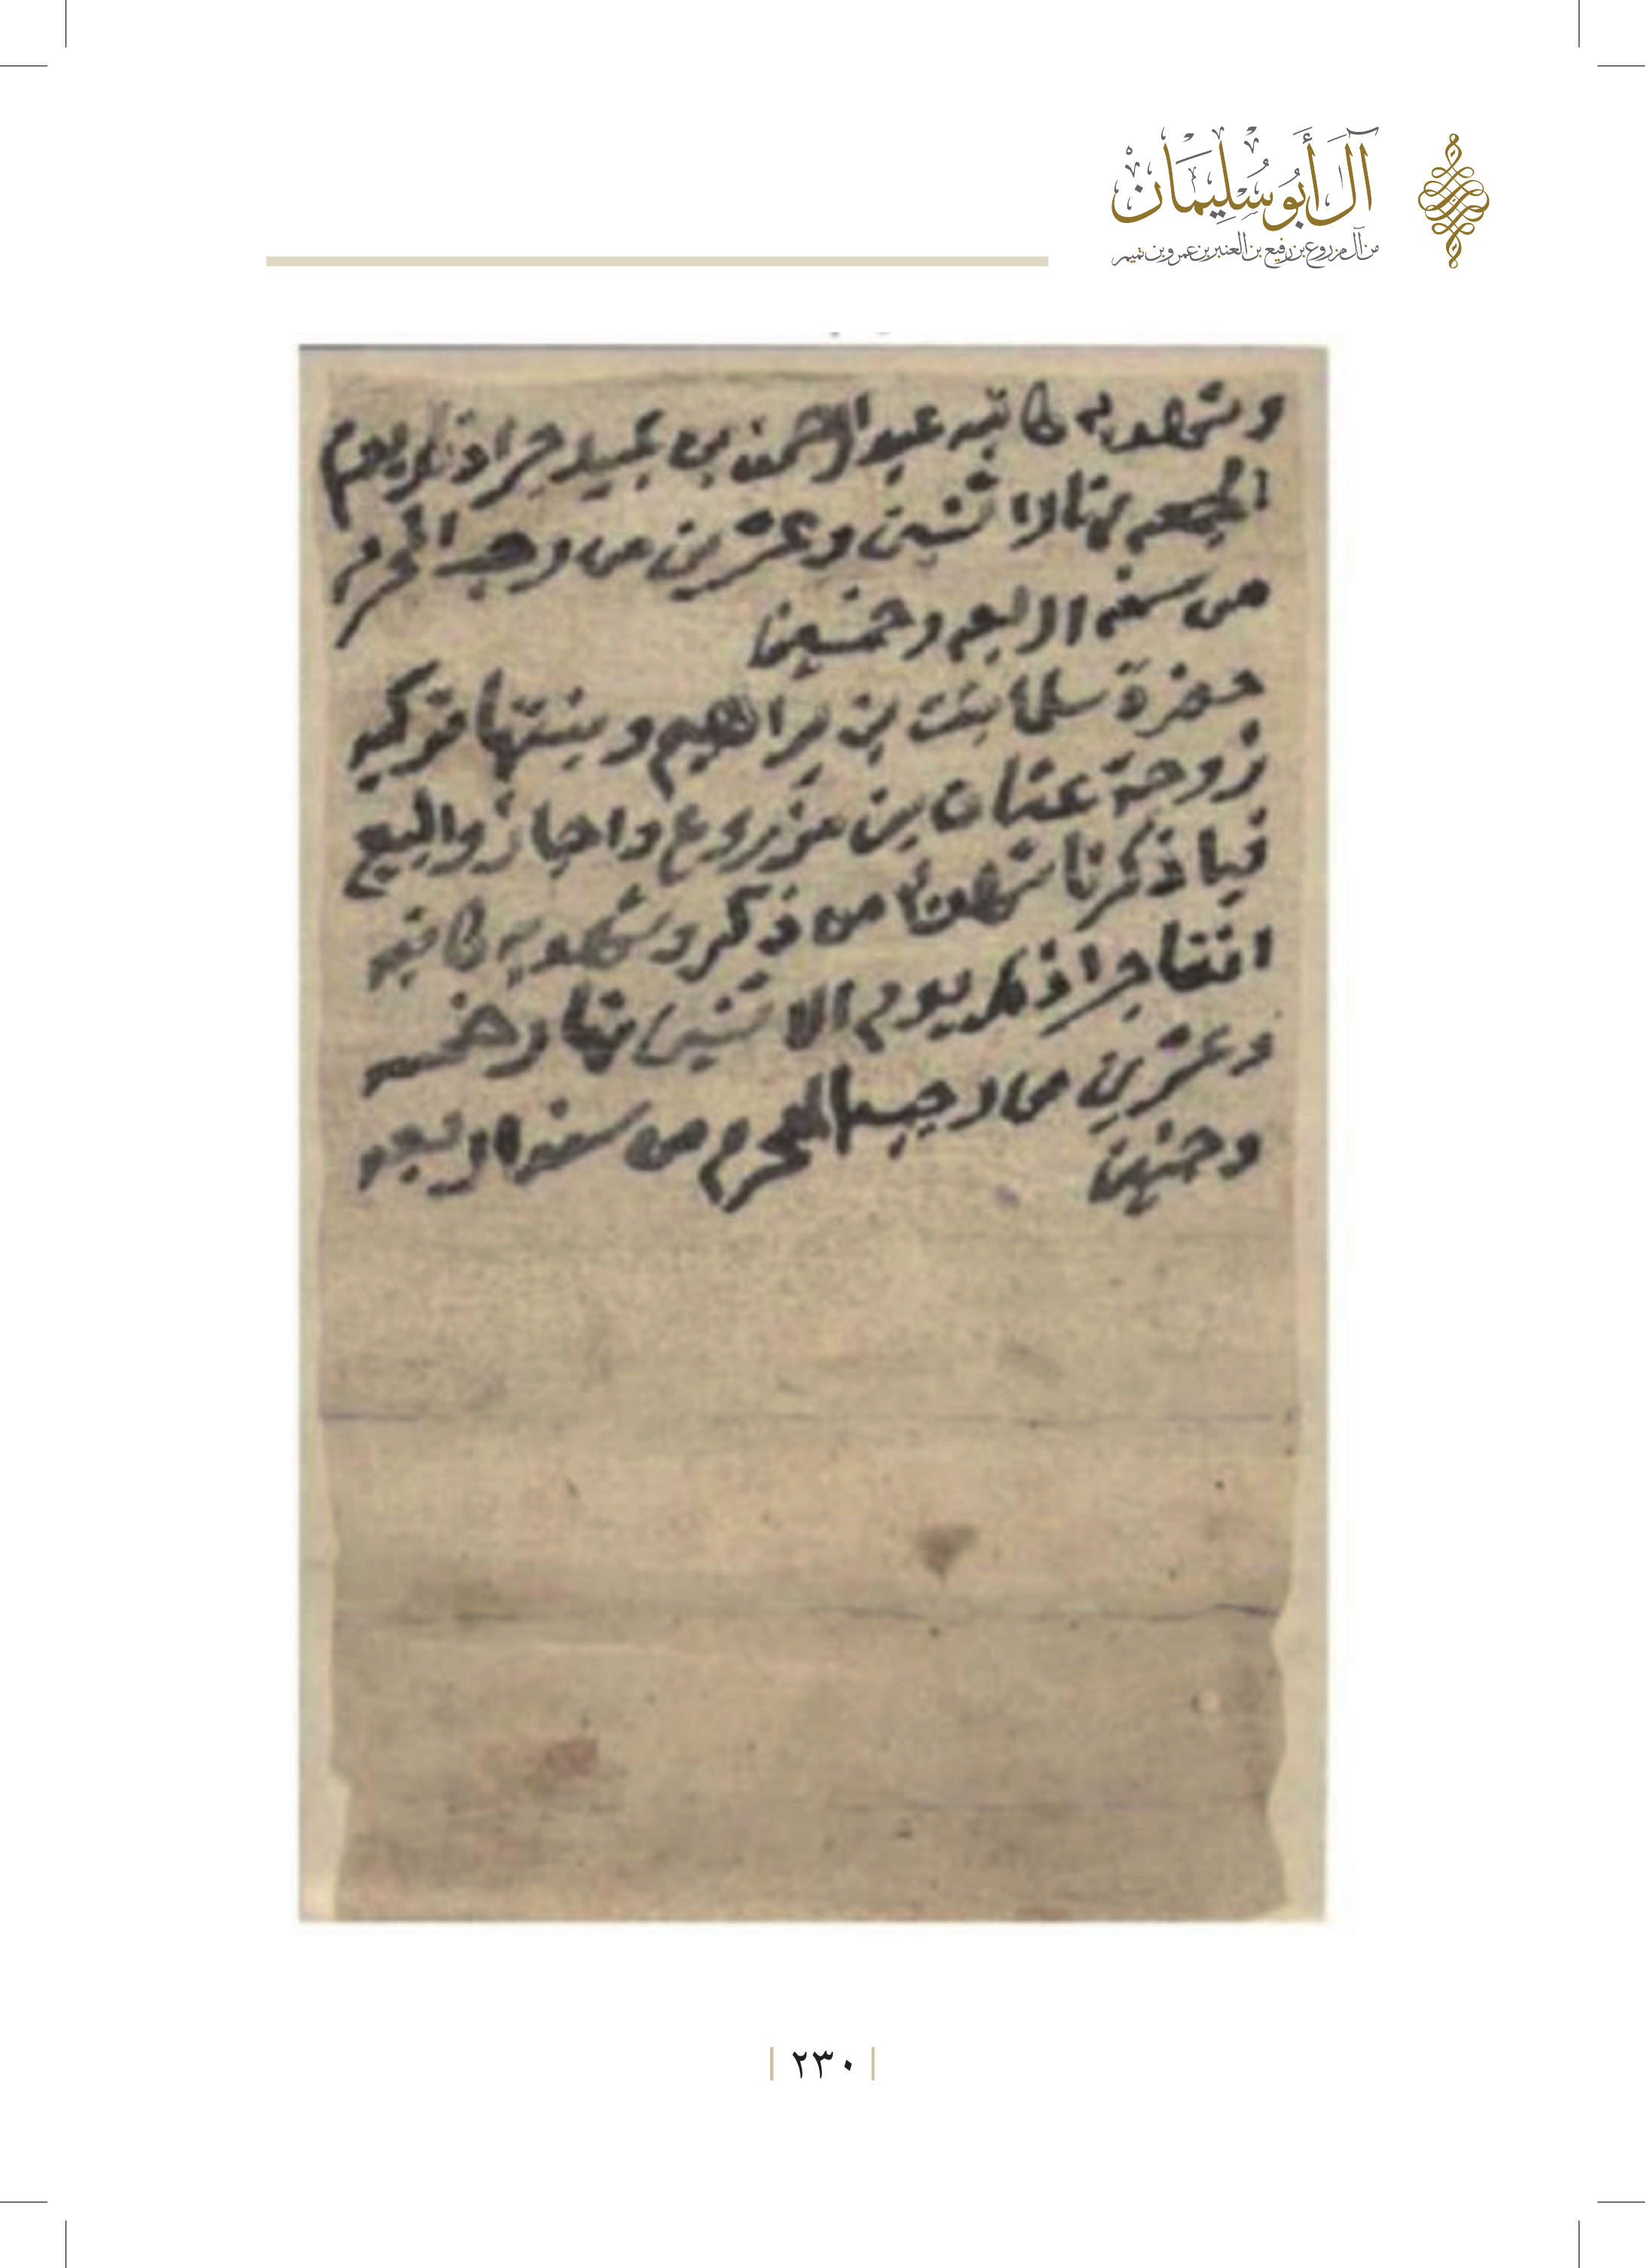 آلَ أَبُو سُلَيْمَانْ
من آل مزروع بن رفيع بن العنبر بن عمرو بن تميم
وشهد به كاتبه عبدالرحمن بن جرا ذلك يوم
الجمعه نهار اثنين وعشرين من رجب المحرم
من سنه اربعه وخمسين
حضرة سلما بنت بن براهيم وبنتها تركيه
زوجة عثمان بن مزروع واجازوا البيع
فيما ذكرنا من ذكر وشهد به كاتبه
جرا ذلك يوم الاثنين نهار خمسه
وعشرين من رجب المحرم من سنه اربعه
وخمسين
٢٣٠